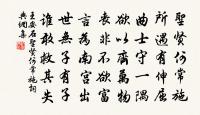 聖賢何常施
所遇有伸屈
曲士守一隅
欲以齊萬物
喪非不欲富
言為南宮出
世無子有子
誰敢救其失
王安石聖賢何常施詞
典網集